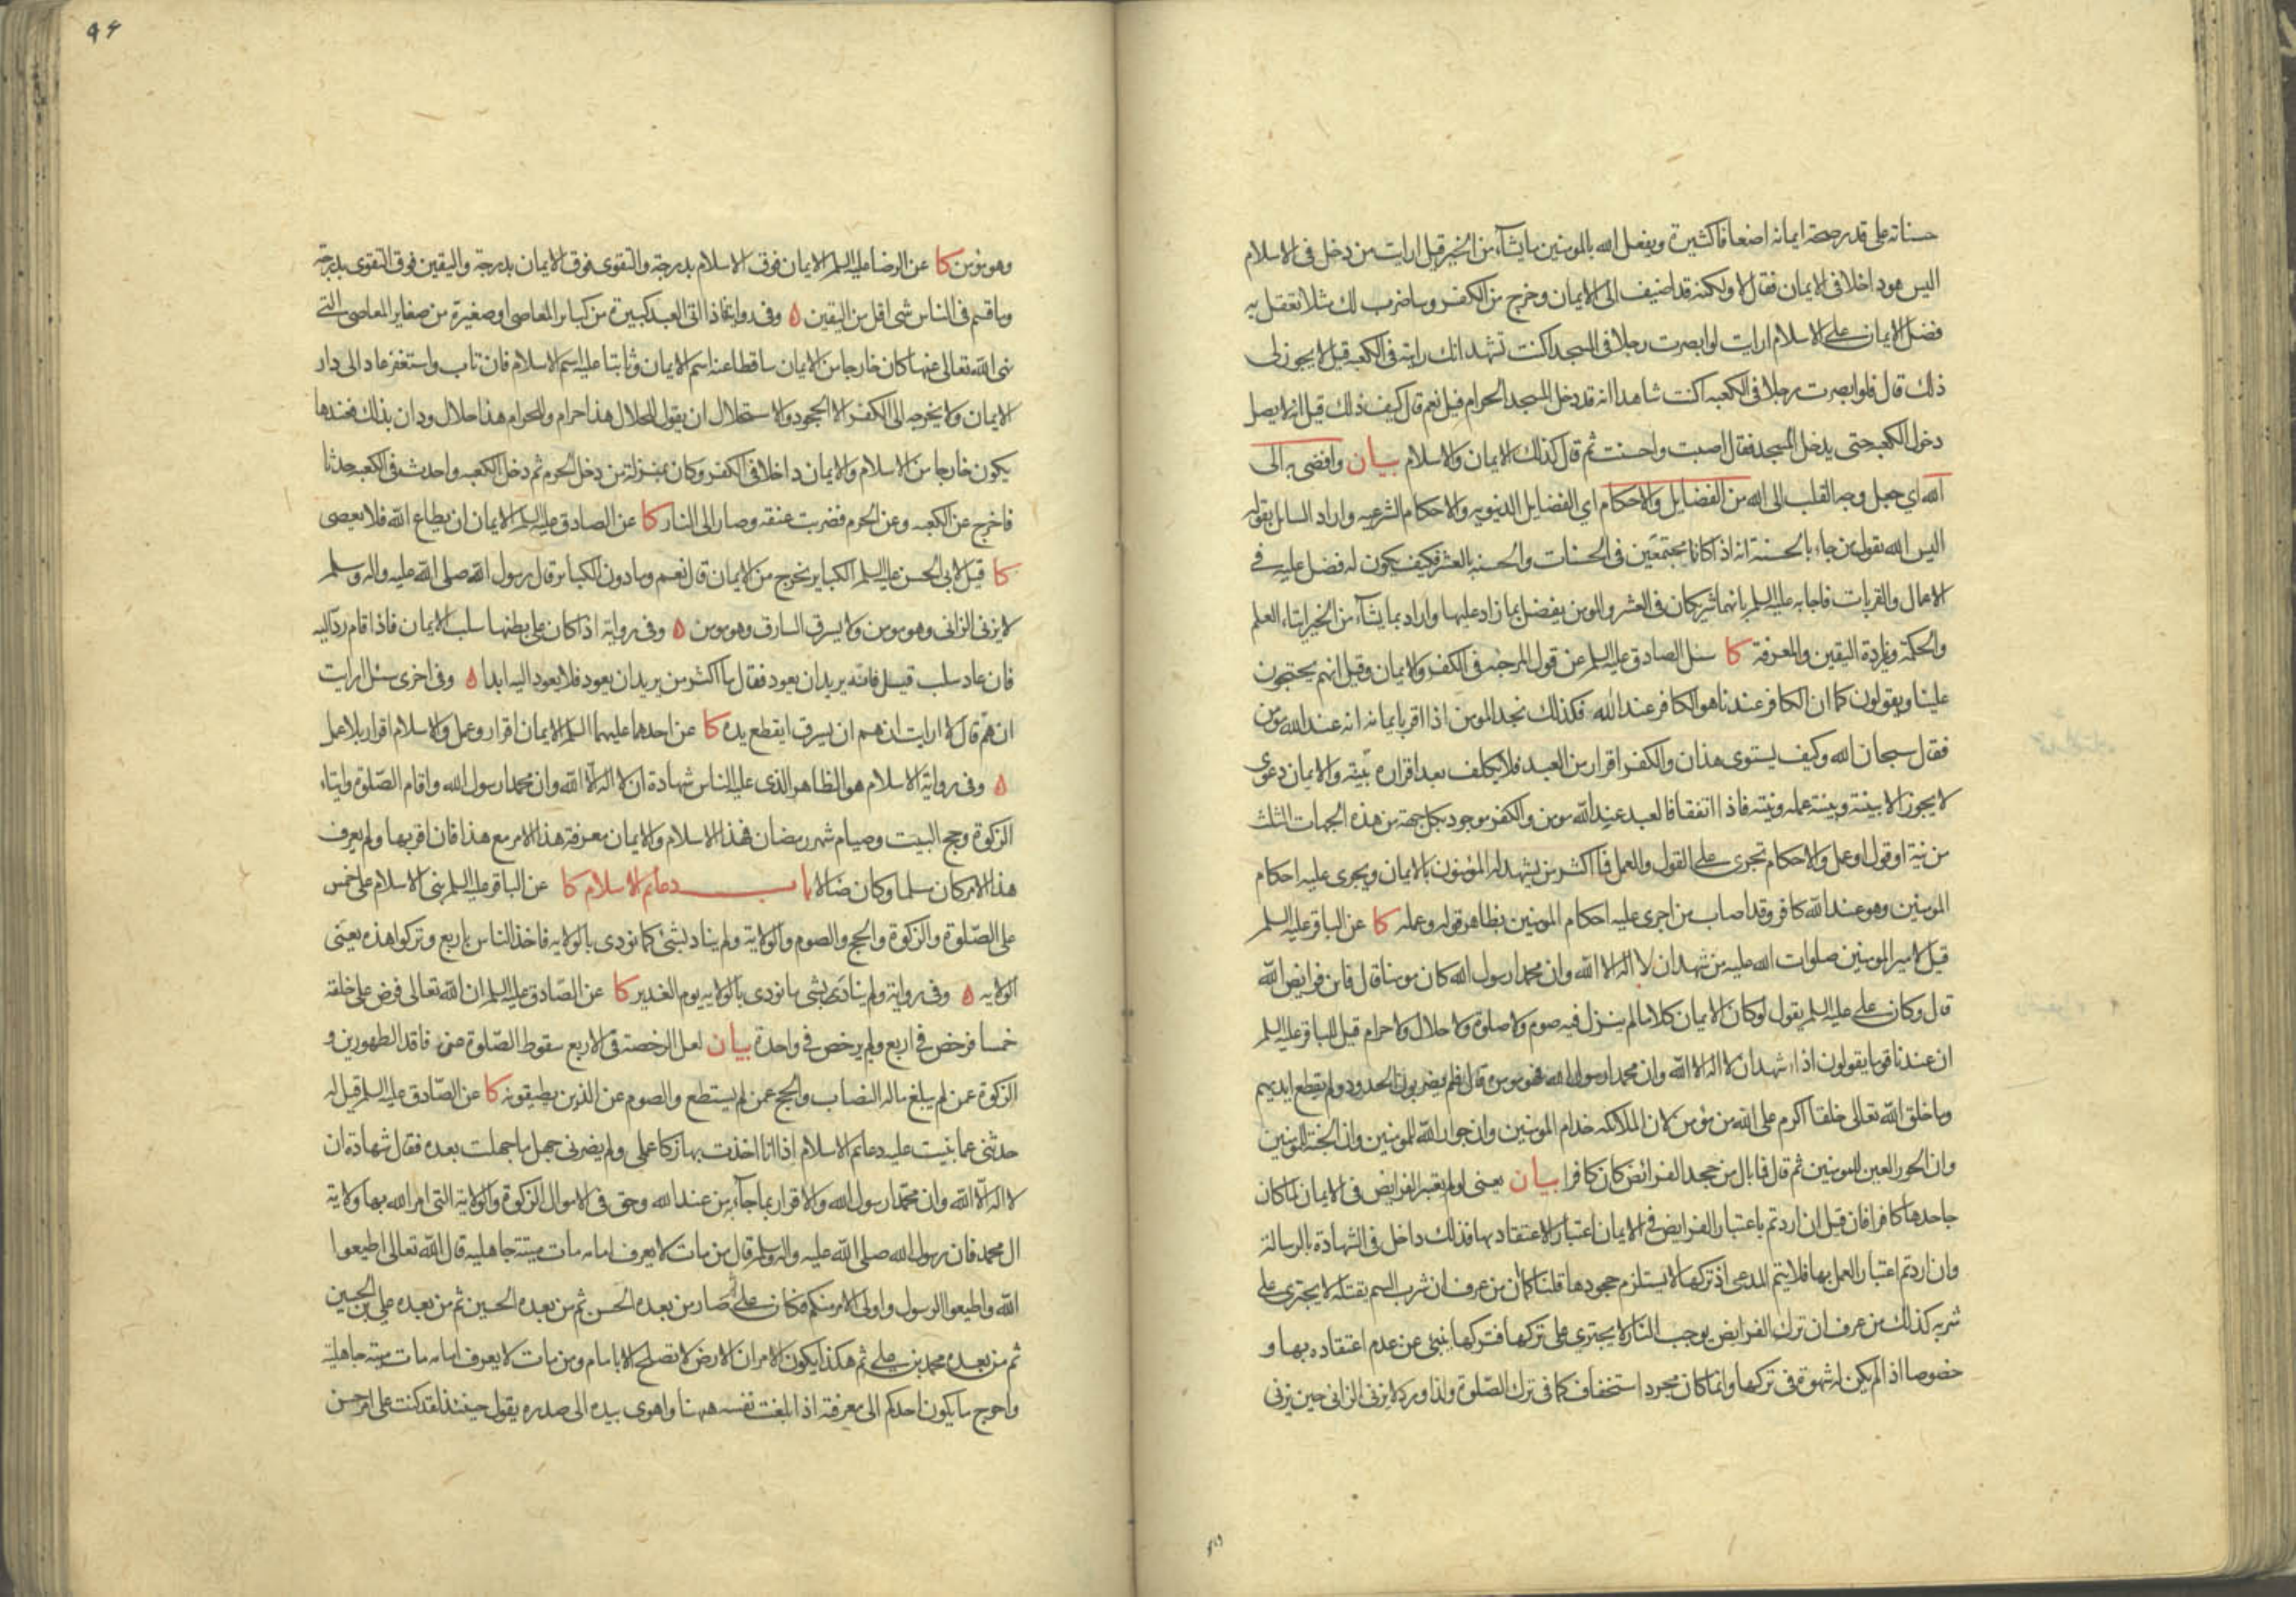 حسناته على قدر صحة ايمانه اضعافا كثيرة ويفعل الله بالمومنين ما يشآء من الخير قيل ارايت من دخل فى الاسلام
اليس هو داخلا فى الايمان فقال لا ولكنه قد اضيف الى الايمان وخرج من الكفر وساضرب لك مثلا تعقل به
فضل الايمان على الاسلام ارايت لو ابصرت رجلا فى المسجد اكنت تشهد انك رايته فى الكعبه قيل لا يجوز لى
ذلك قال فلو ابصرت رجلا فى الكعبه اكنت شاهدا انه قد دخل المسجد الحرام قيل نعم قال كيف ذلك قيل انه لا يصل
دخول الكعبه حتى يدخل المسجد فقال اصبت واحسنت ثم قال كذلك الايمان والاسلام بيان وافضى به الى
الله اي جعل وجه القلب الى الله من الفضايل والاحكام اي الفضايل الدنيويه والاحكام الشرعيه واراد السايل بقوله
اليس الله يقول من جاء بالحسنة انه اذا كانا مجتمعين فى الحسنات والحسنه بالعشر فكيف يكون له فضل عليه فى
الاعمال والقربات فاجابه عليه السلم بانهما شريكان فى العشر والمومن يفضل بما زاد عليها واراد بما يشآء من الخير ايتاء العلم
والحكمة وزيادة اليقين والمعرفة كا سئل الصادق عليه السلم عن قول المرجئه فى الكفر والايمان وقيل انهم يحتجون
علينا ويقولون كما ان الكافر عندنا هو الكافر عند الله فكذلك نجد المومن اذا اقر بايمانه انه عند الله مومن
فقال سبحان الله وكيف يستوى هذان والكفر اقرار من العبد فلا يكلف بعد اقراره ببينه والايمان دعوى
لا يجوز الا ببينة وبينته عمله ونيته فاذا اتفقا فالعبد عند الله مومن والكفر موجود بكل جهة من هذه الجهات الثلث
من نية او قول او عمل والاحكام تجرى على القول والعمل فما اكثر من يشهد له المؤمنون بالايمان ويجرى عليه احكام
المومنين وهو عند الله كافر وقد اصاب من اجرى عليه احكام المومنين بظاهر قوله وعمله كا عن الباقر عليه السلم
قيل لامير المومنين صلوات الله عليه من شهد ان لا اله الا الله وان محمدا رسول الله كان مومنا قال فاين فرايض الله
قال وكان على عليه السلم يقول لو كان الايمان كلاما لم ينزل فيه صوم ولا صلوة ولا حلال ولا حرام قيل للباقر عليه السلم
ان عندنا قوما يقولون اذا شهد ان لا اله الا الله وان محمدا رسول الله فهو مومن قال فلم يضربون الحدود ولم يقطع ايديهم
وما خلق الله تعالى خلقا اكرم على الله من مؤمن لان الملائكه خدام المومنين وان جوار الله للمومنين وان الجنة للمومنين
وان الحور العين للمومنين ثم قال فما بال من جحد الفرائض كان كافرا بيان يعنى لو لم يعتبر الفرايض فى الايمان لما كان
جاحدها كافرا فان قيل ان اردتم باعتبار الفرايض فى الايمان اعتبار الاعتقاد بها فذلك داخل فى الشهادة بالرسالة
وان اردتم اعتبار العمل بها فلا يتم المدعى اذ تركها لا يستلزم جحودها قلنا كما ان من عرف ان شرب السم يقتله لا يجترى على
شربه كذلك من عرف ان ترك الفرايض يوجب النار لا يجترى على تركها فتركها ينبئ عن عدم اعتقاده بها و
خصوصا اذا لم يكن له شهوة فى تركها وانما كان مجرد استخفاف كما فى ترك الصّلوة ولذا ورد لا يزنى الزانى حين يزنى
وهو مؤمن كا عن الرضا عليه السلم الايمان فوق الاسلام بدرجة والتقوى فوق الايمان بدرجة واليقين فوق التقوى بدرجة
وما قسم فى الناس شى اقل من اليقين ه وفى رواية فاذا اتى العبد كبيرة من كباير المعاصى او صغيرة من صغاير المعاصى التى
نهى الله تعالى عنها كان خارجا من الايمان ساقطا عنه اسم الايمان وثابتا عليه اسم الاسلام فان تاب واستغفر عاد الى دار
الايمان ولا يخرجه الى الكفر الا الجحود والاستحلال ان يقول للحلال هذا حرام وللحرام هذا حلال ودان بذلك فعندها
يكون خارجا من الاسلام والايمان داخلا فى الكفر وكان بمنزلة من دخل الحرم ثم دخل الكعبه واحدث فى الكعبه حدثا
فاخرج عن الكعبه وعن الحرم فضربت عنقه وصار الى النار كا عن الصادق عليه السلم الايمان ان يطاع الله فلا يعصى
كا قيل لابى الحسن عليه السلم الكباير يخرج من الايمان قال نعم وما دون الكباير قال رسول الله صلى الله عليه واله وسلم
لا يزنى الزانى وهو مومن ولا يسرق السارق وهو مومن ه وفى رواية اذا كان على بطنها سلب الايمان فاذا قام ردّ اليه
فان عاد سلب قيل فانه يريد ان يعود فقال ما اكثر من يريد ان يعود فلا يعود اليه ابدا ه وفى اخرى سئل ارايت
ان همّ قال لا ارايت ان هم ان يسرق ايقطع يده كا عن احدهما عليهما السلم الايمان اقرار وعمل والاسلام اقرار بلا عمل
ه وفى رواية الاسلام هو الظاهر الذى عليه الناس شهادة ان لا اله الا الله وان محمدا رسول الله واقام الصّلوة وايتاء
الزكوة وحج البيت وصيام شهر رمضان فهذا الاسلام والايمان معرفة هذا الامر مع هذا فان اقر بها ولم يعرف
هذا الامر كان مسلما وكان ضالا باب دعايم الاسلام كا عن الباقر عليه السلم بنى الاسلام على خمس
على الصّلوة والزكوة والحج والصوم والولاية ولم يناد بشئ كما نودى بالولايه فاخذ الناس باربع وتركوا هذه يعنى
الولايه ه وفى رواية ولم ينادى بشى ما نودى بالولايه يوم الغدير كا عن الصّادق عليه السلم ان الله تعالى فرض على خلقه
خمسا فرخص فى اربع ولم يرخص فى واحدة بيان لعل الرخصة فى الاربع سقوط الصّلوة عن فاقد الطهورين و
الزكوة عمن لم يبلغ ماله النصاب والحج عمن لم يستطع والصوم عن الذين يطيقونه كا عن الصّادق عليه السلم قيل له
حدثنى عما بنيت عليه دعايم الاسلام اذا انا اخذت بها زكا عملى ولم يضرنى جهل ما جهلت بعده فقال شهادة ان
لا اله الا الله وان محمّدا رسول الله والاقرار بما جآء من عند الله وحق فى الاموال الزكوة والولاية التى امر الله بها ولاية
ال محمد فان رسول الله صلى الله عليه واله وسلم قال من مات لا يعرف امامه مات ميتة جاهليه قال الله تعالى اطيعوا
الله واطيعوا الرسول واولى الامر منكم فكان على ثم صار من بعده الحسن ثم من بعده الحسين ثم من بعده على بن الحسين
ثم من بعده محمد بن على ثم هكذا يكون الامر ان الارض لا تصلح الا بامام ومن مات لا يعرف امامه مات ميتة جاهلية
واحوج ما يكون احدكم الى معرفته اذا بلغت نفسه ههنا واهوى بيده الى صدره يقول حينئذ لقد كنت على امر حسن